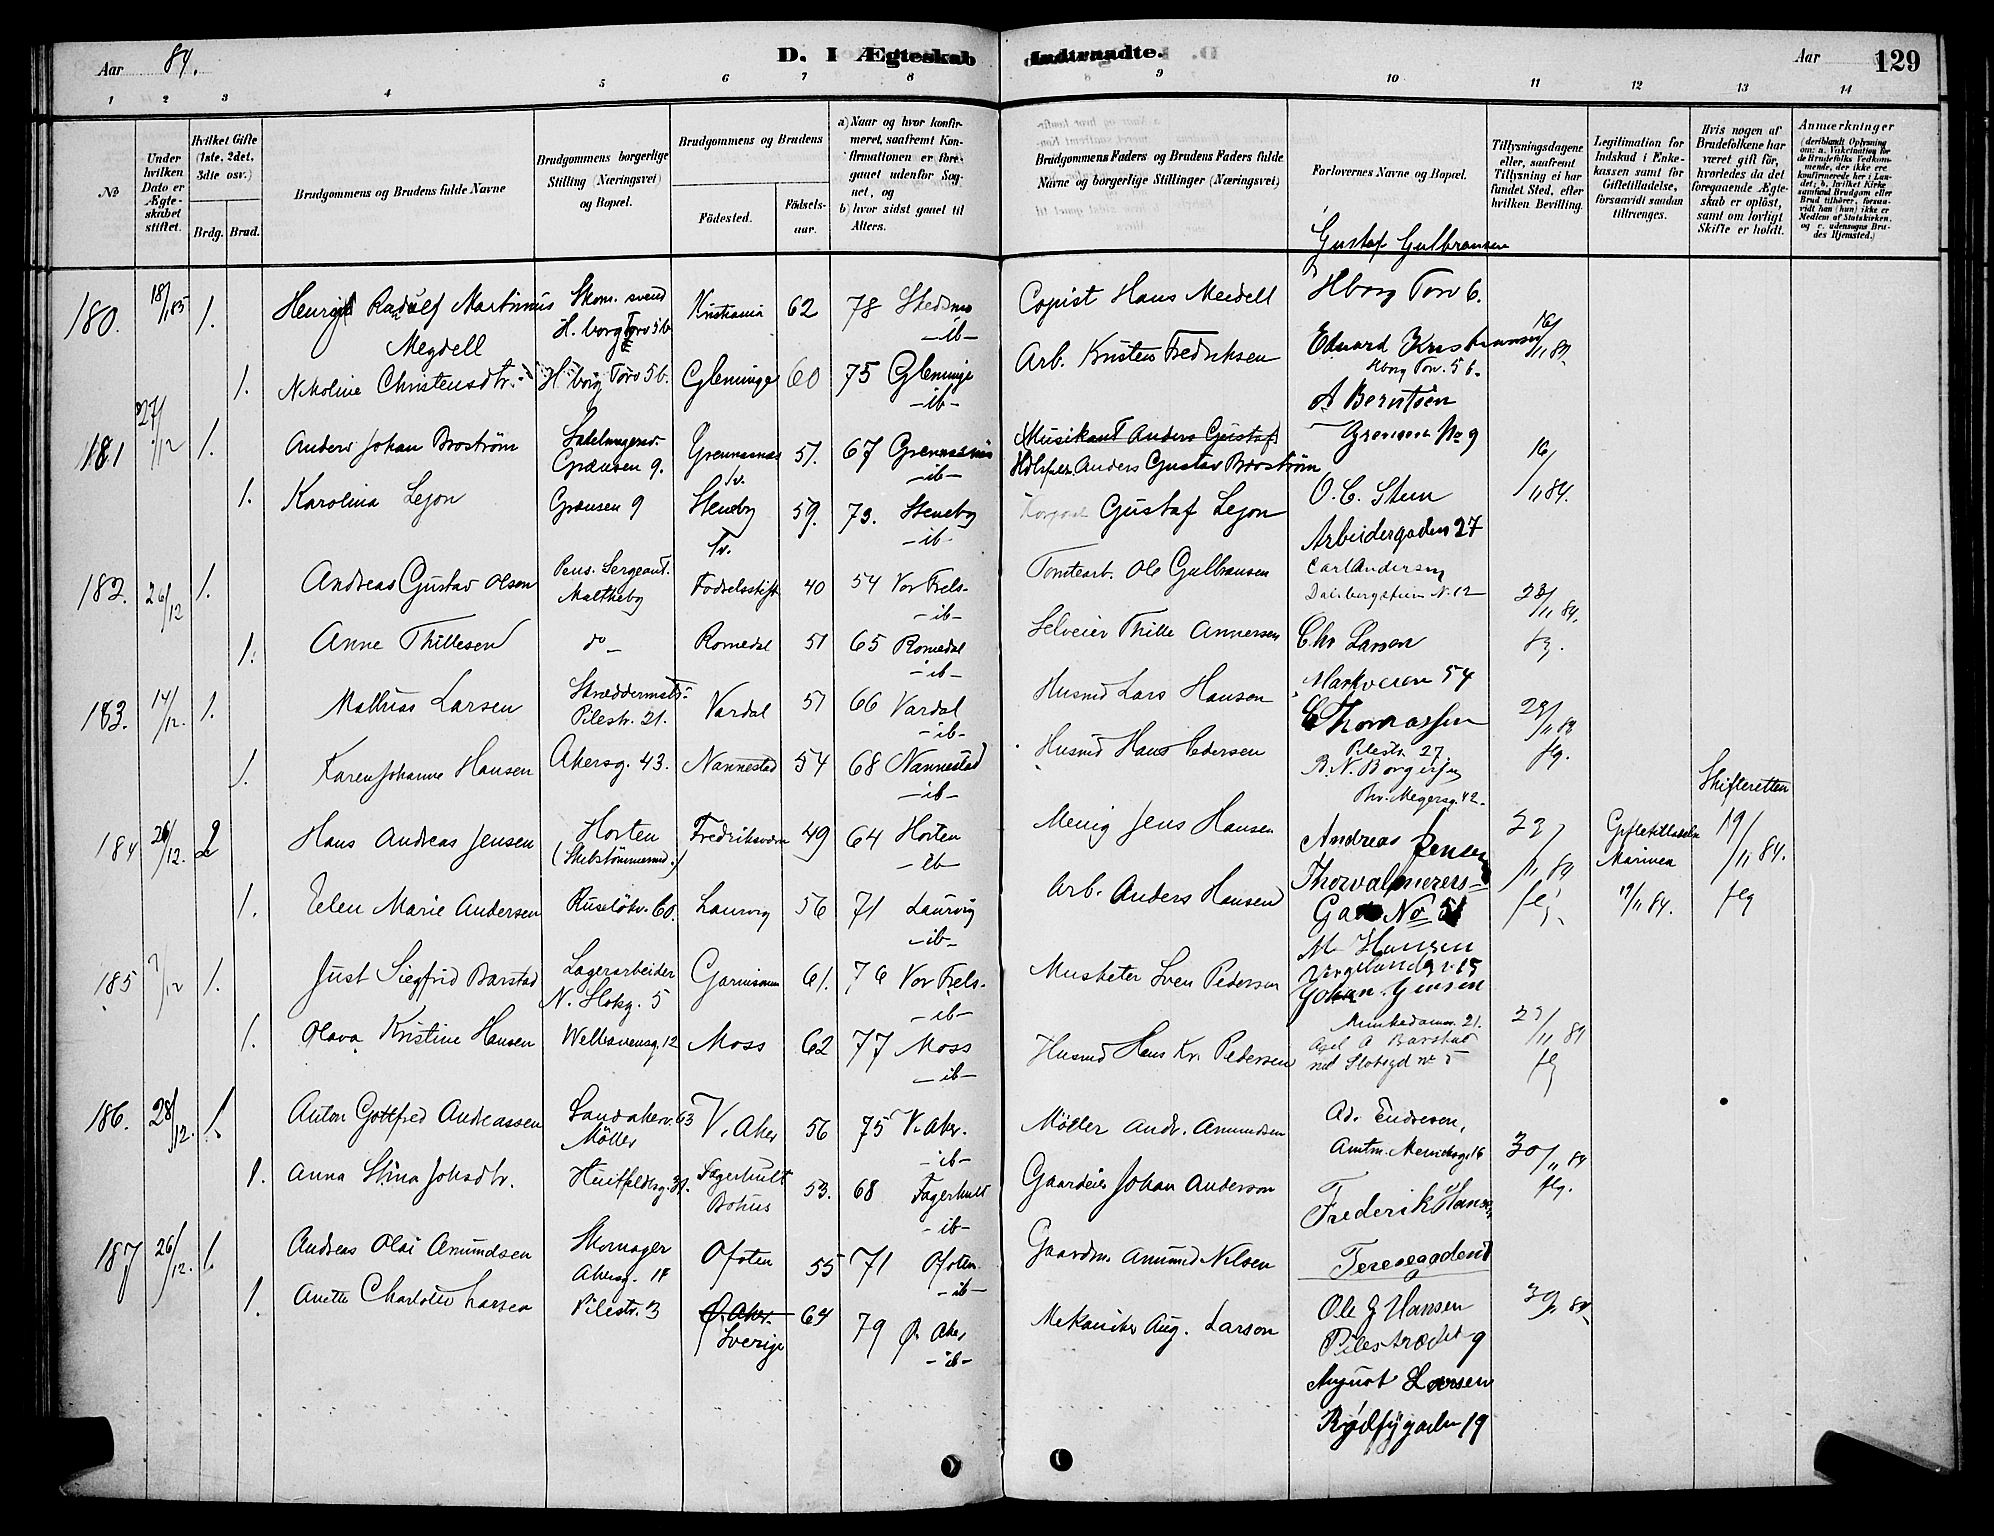 Aar 84.
D. I Ægteskab Indtraadte.
Aar
129
1 2 3 4 5 6 7 8 9 10 11 12 13 14
№
Under hvilken Dato er Ægteskabet stiftet.
Hvilket Gifte (1ste, 2det, 3die osv.)
Brdg. Brud.
Brudgommens og Brudens fulde Navne
Brudgommens borgerlige Stilling (Næringsvei) og Bopæl.
Brudgommens og Brudens
Födested. Födselsaar.
a) Naar og hvor konfirmeret, saafremt Konfirmationen er foregaaet udenfor Sognet, og
b) hvor sidst gaaet til Alters.
Brudgommens Faders og Brudens Faders fulde Navne og borgerlige Stillinger (Næringsvei)
Forlovernes Navne og Bopæl.
Tillysningsdagene eller, saafremt Tillysning ei har fundet Sted, efter hvilken Bevilling.
Legitimation for Indskud i Enkekassen samt for Giftetilladelse, forsaavidt saadan tiltrænges.
Hvis nogen af Brudefolkene har været gift för, hvorledes da det foregaaende Ægteskab er oplöst, samt om lovligt Skifte er holdt.
Anmærkninger (deriblandt Oplysning om: a. Vakcination for de Brudefolks Vedkommende, der ikke ere konfirmerede her i Landet; b. hvilket Kirkesamfund Brudgom eller Brud tilhører, forsaavidt han (hun) ikke er Medlem af Statskirken. og c. udensogns Brudes Hjemsted.)
Gustaf Gulbransen
180. 18/1 85 1. Henrik Radulf Martinius Skom. svend Kristiania 62 78 Skedsmo Copist Hans Meidell Hborg Torv 6.
Meydell H. borg Torv 5b —ib—
1. Nikoline Christensdtr. H borg Torv 5b. Gleminge 60 75 Gleminge Arb. Kristen Fredriksen Eduard Kristiansen 16/11 84.
—ib— Hborg Torv. 5b.
A Berntsen
181 27/12 1. Anders Johan Broström Grennasnäs 51. 67 Grennasnäs Musikant Anders Gustaf Grænsen No 9
Grænsen 9. —ib— Anders Gustav Broström 16/11 84.
1. Karolina Lejon Grænsen 9 Steneby 59. 73. Steneby Gustaf Lejon O. C. Steen
—ib— Arbeidergaden 27
182. 26/12 1. Andreas Gustav Olsen Pens. Sergeant. Fødselsstift 40 54 Vor Frels. Tomtearb. Ole Gulbransen Carl Andersen
Maltheby —ib— Dalsbergstien N. 12 23/11 84.
1. Anne Thillesen do — Romedal 51 65 Romedal Selveier Thille Annersen Chr Larsen flg.
—ib— Markveien 54
183. 14/12. 1. Mathias Larsen Skræddermstr. Vardal 51 66 Vardal Husmd Lars Hansen E Thomassen
Pilestr. 21. —ib— Pilestr. 27 flg.
1. Karen Johanne Hansen Akersg. 43. Nannestad 54 68 Nannestad Husmd Hans Pedersen B. N. Borgersen
—ib— Thv. Meyersg. 42.
Skifteretten
184 26/12. 2 Hans Andreas Jensen Horten Fredriksværn 49 64 Horten Menig Jens Hansen Andreas Jensen 23/11 84 Giftetilladelse 19/11 84.
(Skibstömmermd.) —ib— Marinen
1. Elen Marie Andersen Ruselökv. 60. Laurvig 56 71 Laurvig Arb. Anders Hansen Thorvalmeiers flg. 19/11 84. flg
—ib— Gade No 51
M Hansen
185 7/12 1. Just Siegfrid Barstad Lagerarbeider Garnisonen 61. 76 Vor Frels. Musketer Sven Pedersen Vergelandsv. 15
N. Slotsg. 5 —ib— Johan Jensen
1. Olava Kristine Hansen Welhavensg. 12 Moss 62 77 Moss Husmd Hans Kr. Pedersen Munkedamsv. 21. 23/11 84
—ib— Axel A Barstad
ned Slotsgd № 5 flg
186. 28/12. 1. Anton Gottfred Andreassen Sandakerv. 63 V. Aker 56 75 V. Aker. Møller Andr. Amundsen Ad. Endresen,
Møller —ib— Amtm. Meinichsg. 16 30/11 84
1. Anna Stina Johsdtr. Huitfeldtsg. 31. Fagerhult 53. 68 Fagerhult Gaardeier Johan Anderson Frederik Hansen flg.
Bohus —ib—
187 26/12. 1. Andreas Olai Amundsen Skomager Ofoten 55 71 Ofoten. Gaardm. Amund Nilsen
Akersg. 18 —ib—
1. Anette Charlotte Larsen Pilestr. 3 Ø. Aker. 64 79 Ø. Aker Mekaniker Aug. Larson Ole G Hansen 30/11 84
Sverige —ib— Pilestrædet 9
August Larsen